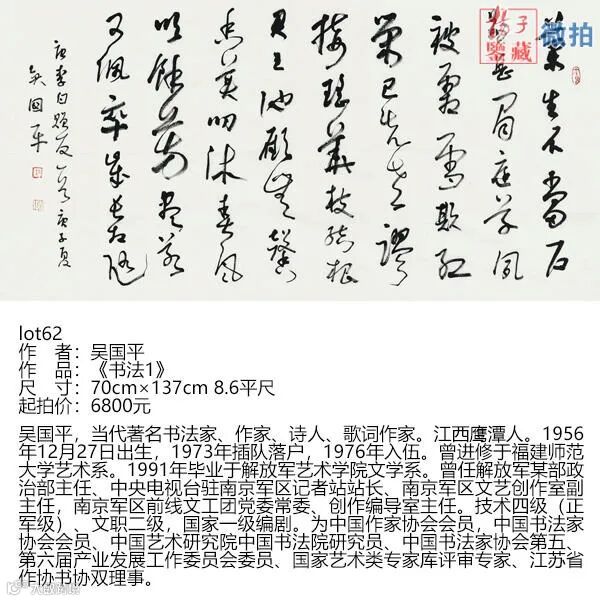 微拍
兰生不当户
别是闲庭草夙
被霜露欺红
荣已先老谬
接瑶华枝结根
君王池顾无馨
香美叨沐风
吹馀芳若
可佩卒岁长相随
唐李白赠友人 庚子夏
吴国平
lot62
作 者：吴国平
作 品：《书法1》
尺 寸：70cm×137cm 8.6平尺
起拍价：6800元
吴国平，当代著名书法家、作家、诗人、歌词作家。江西鹰潭人。1956
年12月27日出生，1973年插队落户，1976年入伍。曾进修于福建师范
大学艺术系。1991年毕业于解放军艺术学院文学系。曾任解放军某部政
治部主任、中央电视台驻南京军区记者站站长、南京军区文艺创作室副
主任，南京军区前线文工团党委常委、创作编导室主任。技术四级（正
军级）、文职二级，国家一级编剧。为中国作家协会会员，中国书法家
协会会员、中国艺术研究院中国书法院研究员、中国书法家协会第五、
第六届产业发展工作委员会委员、国家艺术类专家库评审专家、江苏省
作协书协双理事。